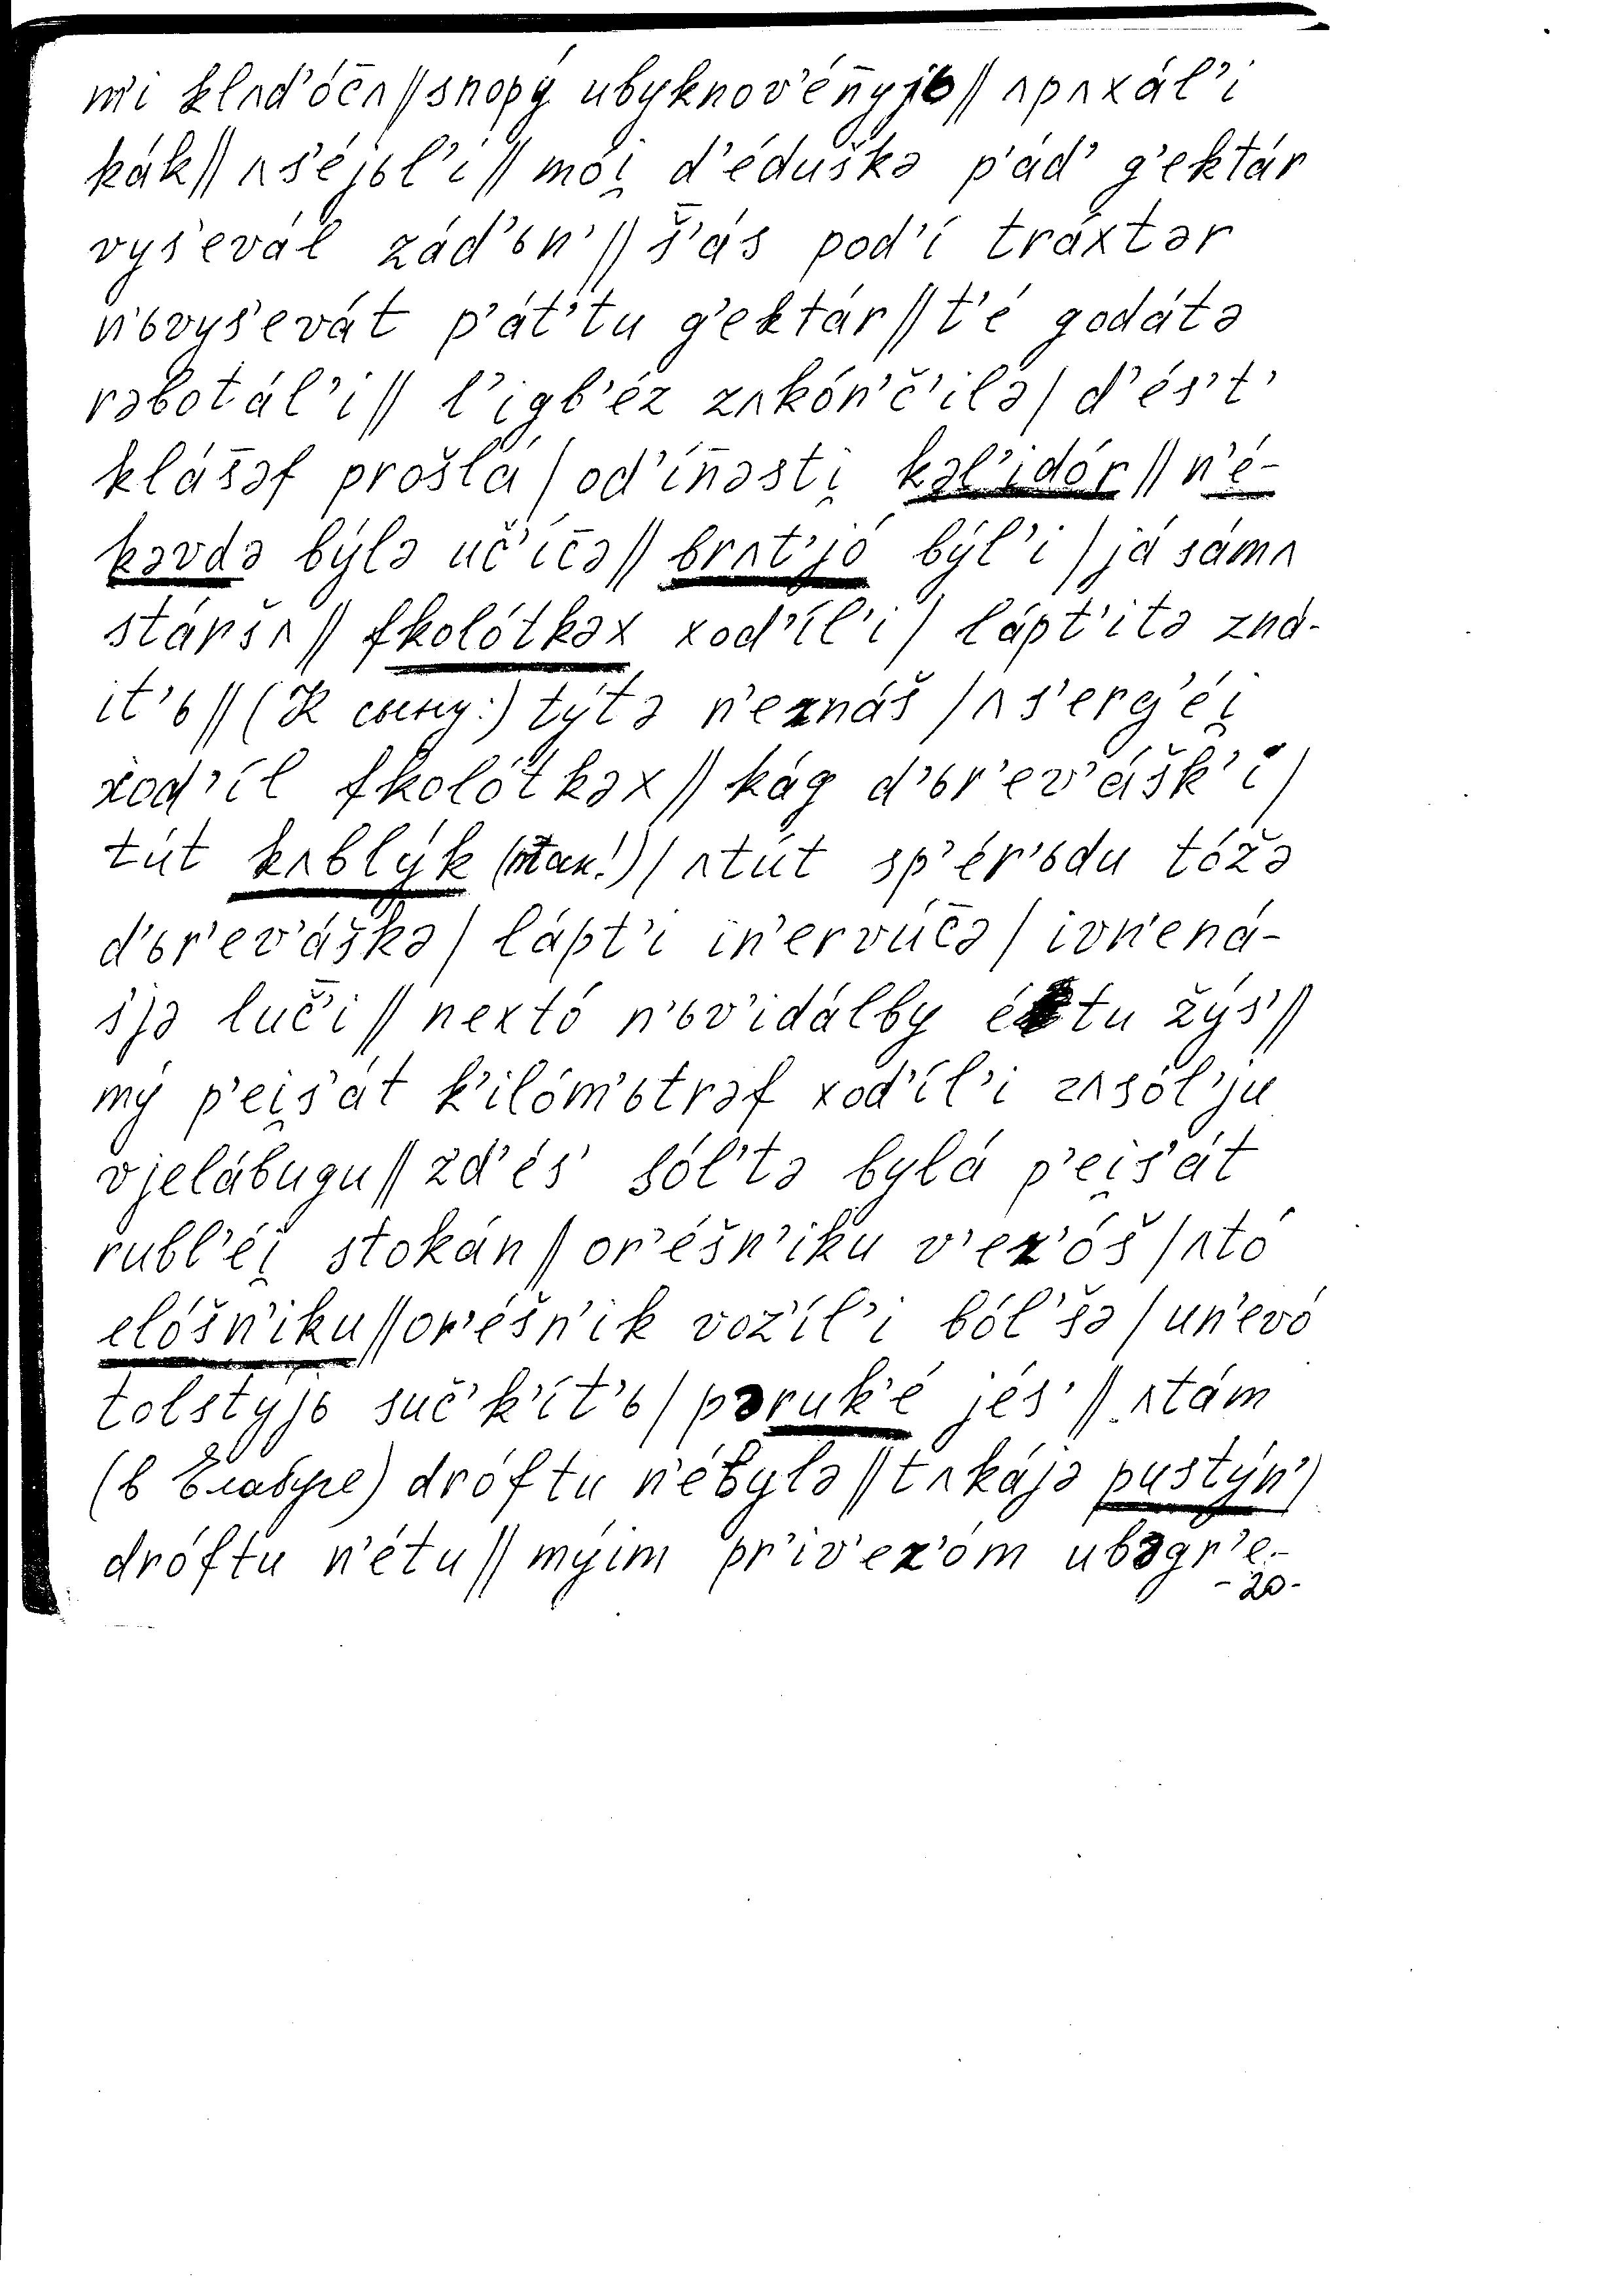 m'i klʌd'óc̄ʌ // snopý ubyknov'én̄yjь // ʌpʌxál'i
kák // ʌs'éjьl'i // mói̯ d'éduškə p'ád' g'ektár
vys'evál zád'ьn' // š̄'ás pod'í tráxtər
n'ьvys'evát p'át'tu g'ektár // t'é godátə
rəbotál'i // l'igb'éz zʌkón'č'ilə / d'és't'
klás̄əf prošlá / od'ín̄əsti̯ kəl'idór // n'é-
kəvdə býlə uč'íc̄ə // brʌt'jó býl'i / já sámʌ
stáršʌ // fkolótkəx xod'íl'i / lápt'itə zná-
it'ь // (К сыну:) týtə n'eznáš / ʌ s'erg'éi̯
xod'íl fkolótkəx // kág d'ьr'ev'ášk'i /
tút kʌblýk (так!) / ʌtút sp'ér'ьdu tóžə
d'ьr'ev'áškə / lápt'i in'ervúc̄ə / ivn'ená-
s'jə luč̄'i // nextó n'ьv'idálby étu žýs' //
mý p'ei̯s'át k'ilóm'ьtrəf xod'íl'i zʌsól'ju
vjelábugu // zd'és' sól'tə bylá p'ei̯s'át
rubl'éi̯ stokán // or'éšn'iku v'ez'óš / ʌtó
elóšn'iku // or'éšn'ik voz'íl'i ból'šə / un'evó
tolstyjь suč'k'ít'ь / pəruk'é jés' // ʌtám
(в Елабуге) dróftu n'ébylə // tʌkájə pustýn' /
dróftu n'étu // mýim pr'iv'ez'óm ubəgr'e-
-20-